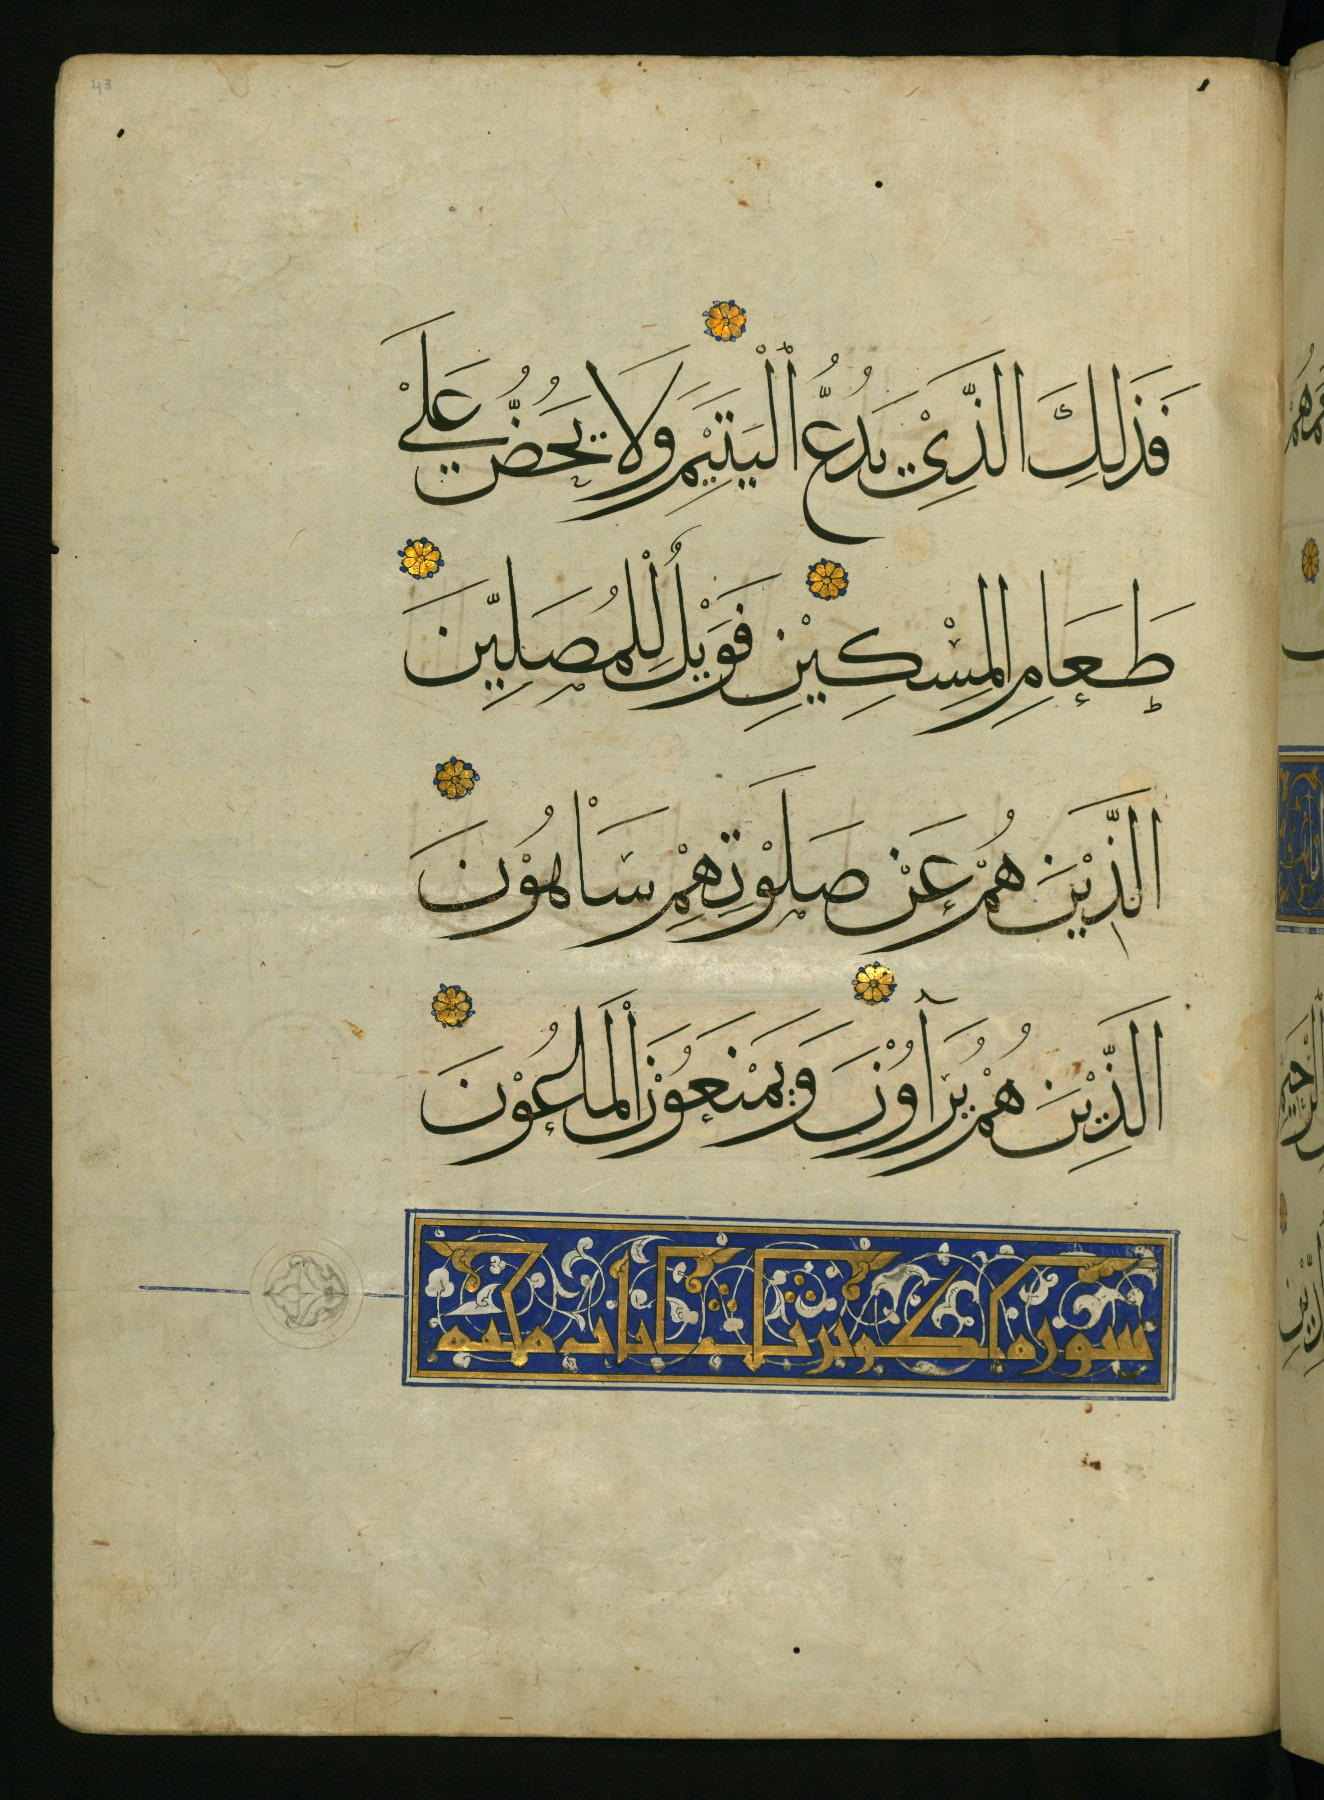 43
فَذٰلِكَ الَّذِيْ يَدُعُّ الْيَتِيْمَ وَلَا يَحُضُّ عَلٰى
طَعَامِ الْمِسْكِيْنِ فَوَيْلٌ لِلْمُصَلِّيْنَ
الَّذِيْنَ هُمْ عَنْ صَلٰوتِهِمْ سَاهُوْنَ
الَّذِيْنَ هُمْ يُرَآوُنَ وَيَمْنَعُوْنَ الْمَاعُوْنَ
سورة الكوثر ثلث ايات مكية